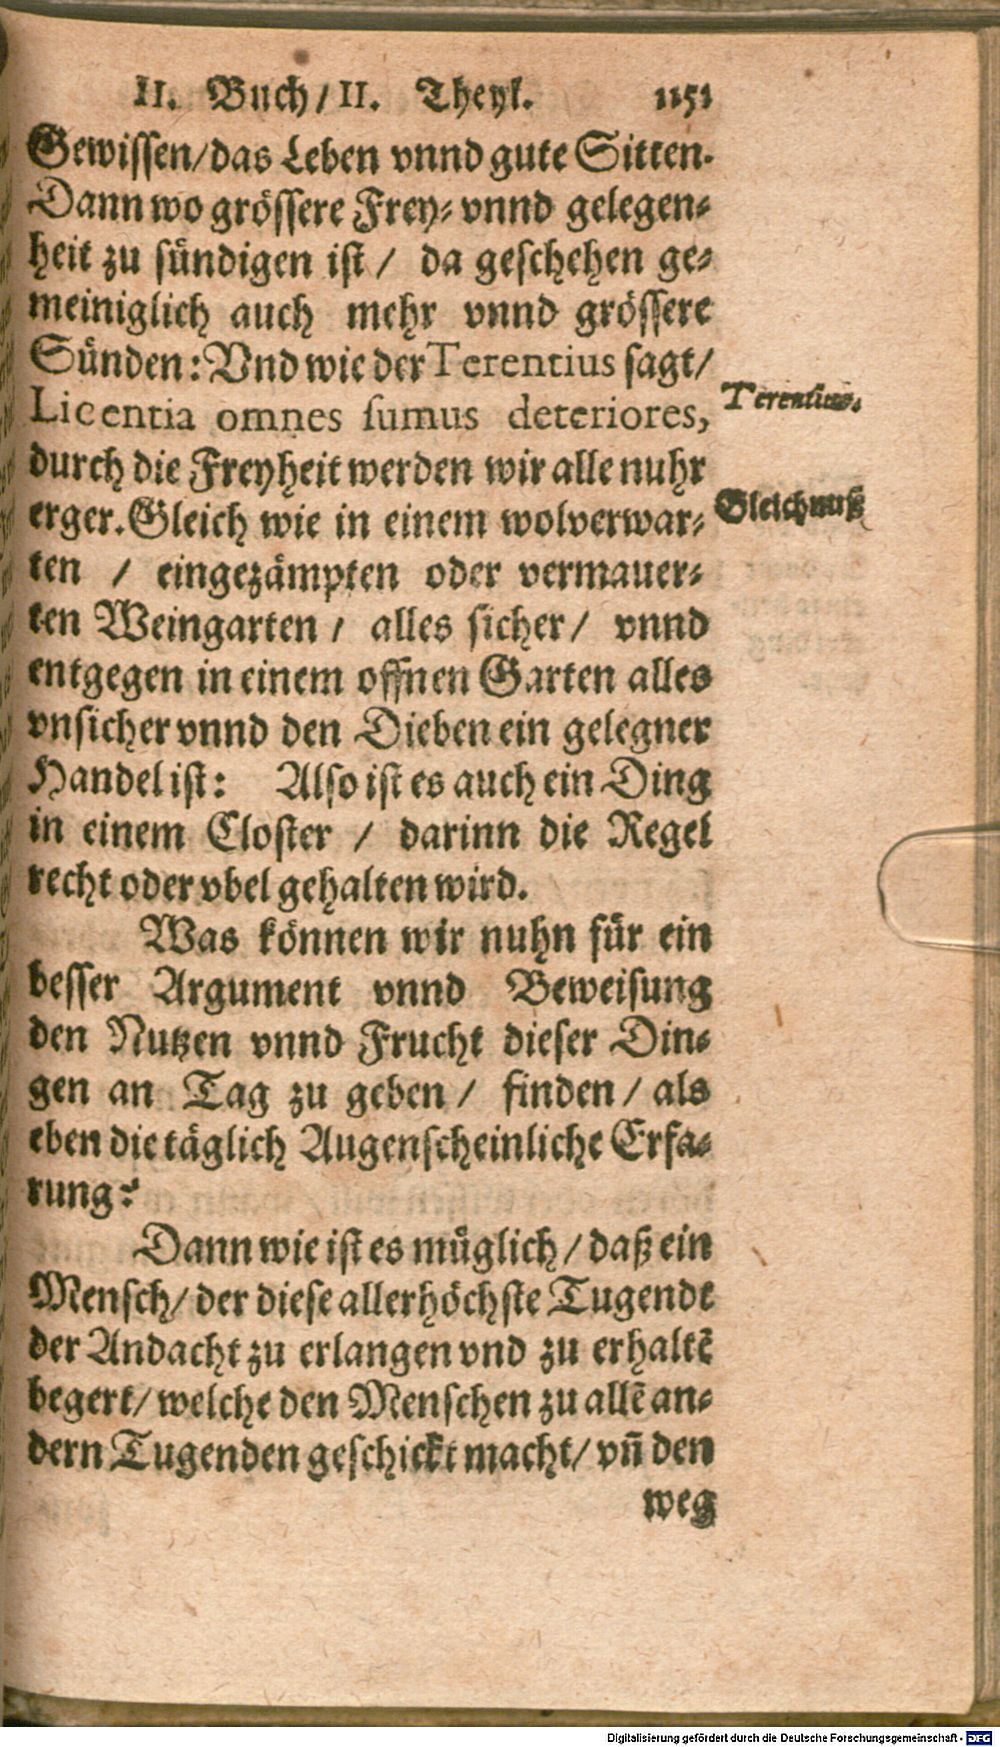 II. Buch/ II. Theyl. 1151
Gewissen/ das Leben vnnd gute Sitten.
Dann wo grössere Frey- vnnd gelegen-
heit zu sündigen ist/ da geschehen ge-
meiniglich auch mehr vnnd grössere
Sünden: Vnd wie der Terentius sagt/
Licentia omnes sumus deteriores,
Terentius.
durch die Freyheit werden wir alle nuhr
erger. Gleich wie in einem wolverwar-
Gleichnuß
ten / eingezämpten oder vermauer-
ten Weingarten / alles sicher/ vnnd
entgegen in einem offnen Garten alles
vnsicher vnnd den Dieben ein gelegner
Handel ist: Also ist es auch ein Ding
in einem Closter / darinn die Regel
recht oder vbel gehalten wird.
Was können wir nuhn für ein
besser Argument vnnd Beweisung
den Nutzen vnnd Frucht dieser Din-
gen an Tag zu geben/ finden/ als
eben die täglich Augenscheinliche Erfa-
rung?
Dann wie ist es müglich/ daß ein
Mensch/ der diese allerhöchste Tugendt
der Andacht zu erlangen vnd zu erhaltẽ
begert/ welche den Menschen zu allẽ an-
dern Tugenden geschickt macht/ vñ den
weg
Digitalisierung gefördert durch die Deutsche Forschungsgemeinschaft - DFG